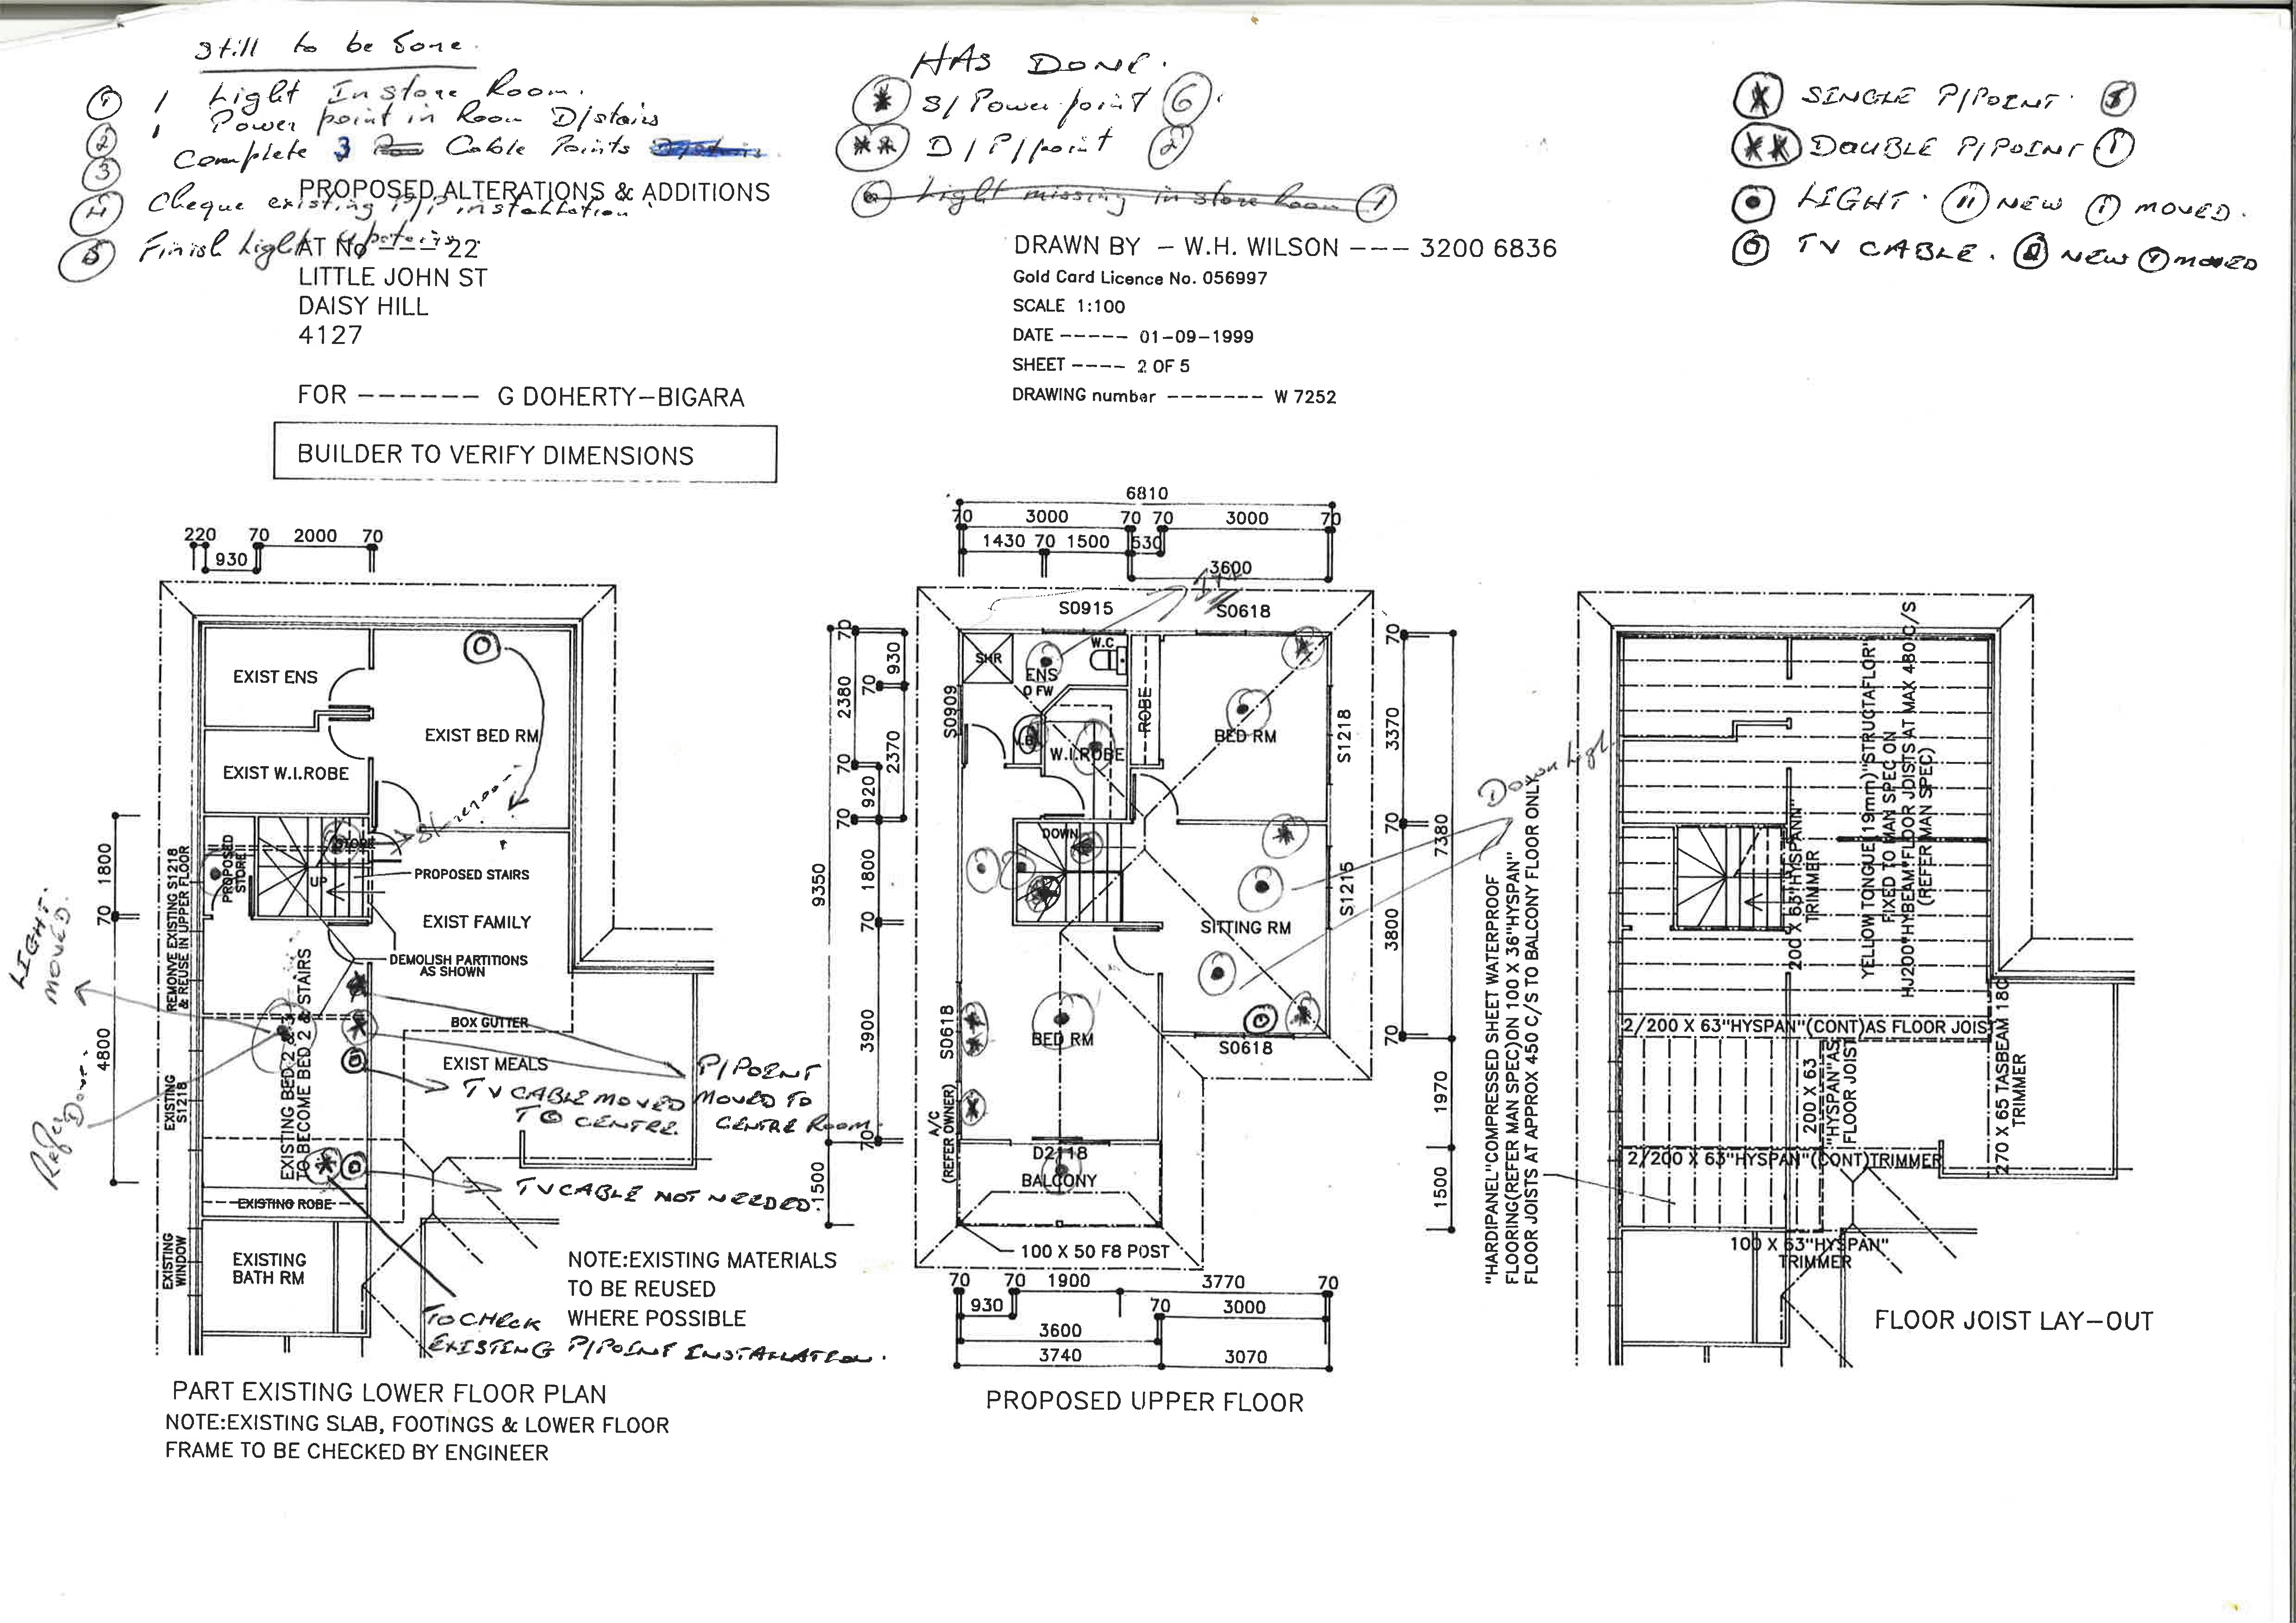 Still to be done.
① 1 Light In store Room.
② 1 Power point in Room D/stairs
③ Complete 3 Cable Points
④ Cheque existing P/P installation
⑤ Finish Light Upstairs
HAS DONE.
* S/Powerpoint 6.
** D/P/point 2
Light missing in store Room 1
* SINGLE P/POINT. 8
** DOUBLE P/POINT 1
LIGHT. 11 NEW 1 MOVED.
TV CABLE. 2 NEW 1 MOVED
PROPOSED ALTERATIONS & ADDITIONS
AT No ---- 22
LITTLE JOHN ST
DAISY HILL
4127
FOR ------ G DOHERTY-BIGARA
BUILDER TO VERIFY DIMENSIONS
DRAWN BY - W.H. WILSON --- 3200 6836
Gold Card Licence No. 056997
SCALE 1:100
DATE ----- 01-09-1999
SHEET ---- 2 OF 5
DRAWING number ------- W 7252
220 70 2000 70
930
EXIST ENS
EXIST BED RM
EXIST W.I.ROBE
Storeroom
PROPOSED STORE
STORE
UP
PROPOSED STAIRS
EXIST FAMILY
DEMOLISH PARTITIONS
AS SHOWN
BOX GUTTER
EXIST MEALS
1800
70
4800
REMONVE EXISTING S1218
& REUSE IN UPPER FLOOR
EXISTING
S1218
EXISTING
WINDOW
LIGHT.
MOVED.
Done.
EXISTING BED 2 & 3
TO BECOME BED 2 & STAIRS
P/POINT
MOVED TO
CENTRE Room.
TV CABLE MOVED
TO CENTRE.
TV CABLE NOT NEEDED.
EXISTING ROBE
EXISTING
BATH RM
NOTE:EXISTING MATERIALS
TO BE REUSED
WHERE POSSIBLE
TO CHECK
EXISTING P/POINT INSTALLATION.
PART EXISTING LOWER FLOOR PLAN
NOTE:EXISTING SLAB, FOOTINGS & LOWER FLOOR
FRAME TO BE CHECKED BY ENGINEER
6810
70 3000 70 70 3000 70
1430 70 1500 530
3600
S0915
S0618
SHR
W.C
ENS
O FW
V.B.
W.I.ROBE
ROBE
BED RM
S0909
S1218
DOWN
SITTING RM
S1215
S0618
BED RM
S0618
D2118
BALCONY
A/C
(REFER OWNER)
100 X 50 F8 POST
9350
70
2380
70
920
70
1800
70
3900
70
1500
930
70
2370
70
3370
70
3800
70
7380
1970
1500
70 70 1900 3770 70
930 70 3000
3600
3740 3070
PROPOSED UPPER FLOOR
Down light
"HARDIPANEL"COMPRESSED SHEET WATERPROOF
FLOORING(REFER MAN SPEC)ON 100 X 36"HYSPAN"
FLOOR JOISTS AT APPROX 450 C/S TO BALCONY FLOOR ONLY
YELLOW TONGUE(19mm)"STRUCTAFLOR"
FIXED TO MAN SPEC ON
HJ200"HYBEAM"FLOOR JOISTS AT MAX 480 C/S
(REFER MAN SPEC)
200 X 63"HYSPANN"
TRIMMER
2/200 X 63"HYSPAN"(CONT)AS FLOOR JOIST
200 X 63
"HYSPAN"AS
FLOOR JOIST
270 X 65 TASBEAM 18C
TRIMMER
2/200 X 63"HYSPAN"(CONT)TRIMMER
100 X 63"HYSPAN"
TRIMMER
FLOOR JOIST LAY-OUT